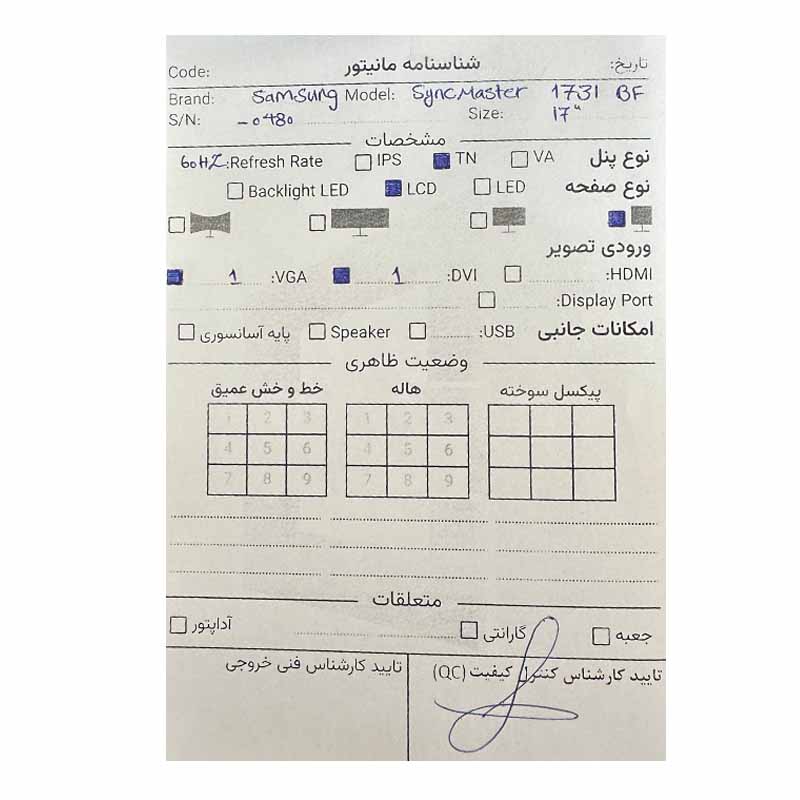 تاریخ: شناسنامه مانیتور Code:
Brand: Samsung Model: SyncMaster 1731 BF
S/N: -0480 Size: 17"
مشخصات
نوع پنل VA TN IPS Refresh Rate: 60HZ
نوع صفحه LED LCD Backlight LED
ورودی تصویر
HDMI: DVI: 1 VGA: 1
Display Port:
امکانات جانبی USB: Speaker پایه آسانسوری
وضعیت ظاهری
پیکسل سوخته هاله خط و خش عمیق
1 2 3 1 2 3
4 5 6 4 5 6
7 8 9 7 8 9
متعلقات
جعبه گارانتی آداپتور
تایید کارشناس کنترل کیفیت (QC) تایید کارشناس فنی خروجی